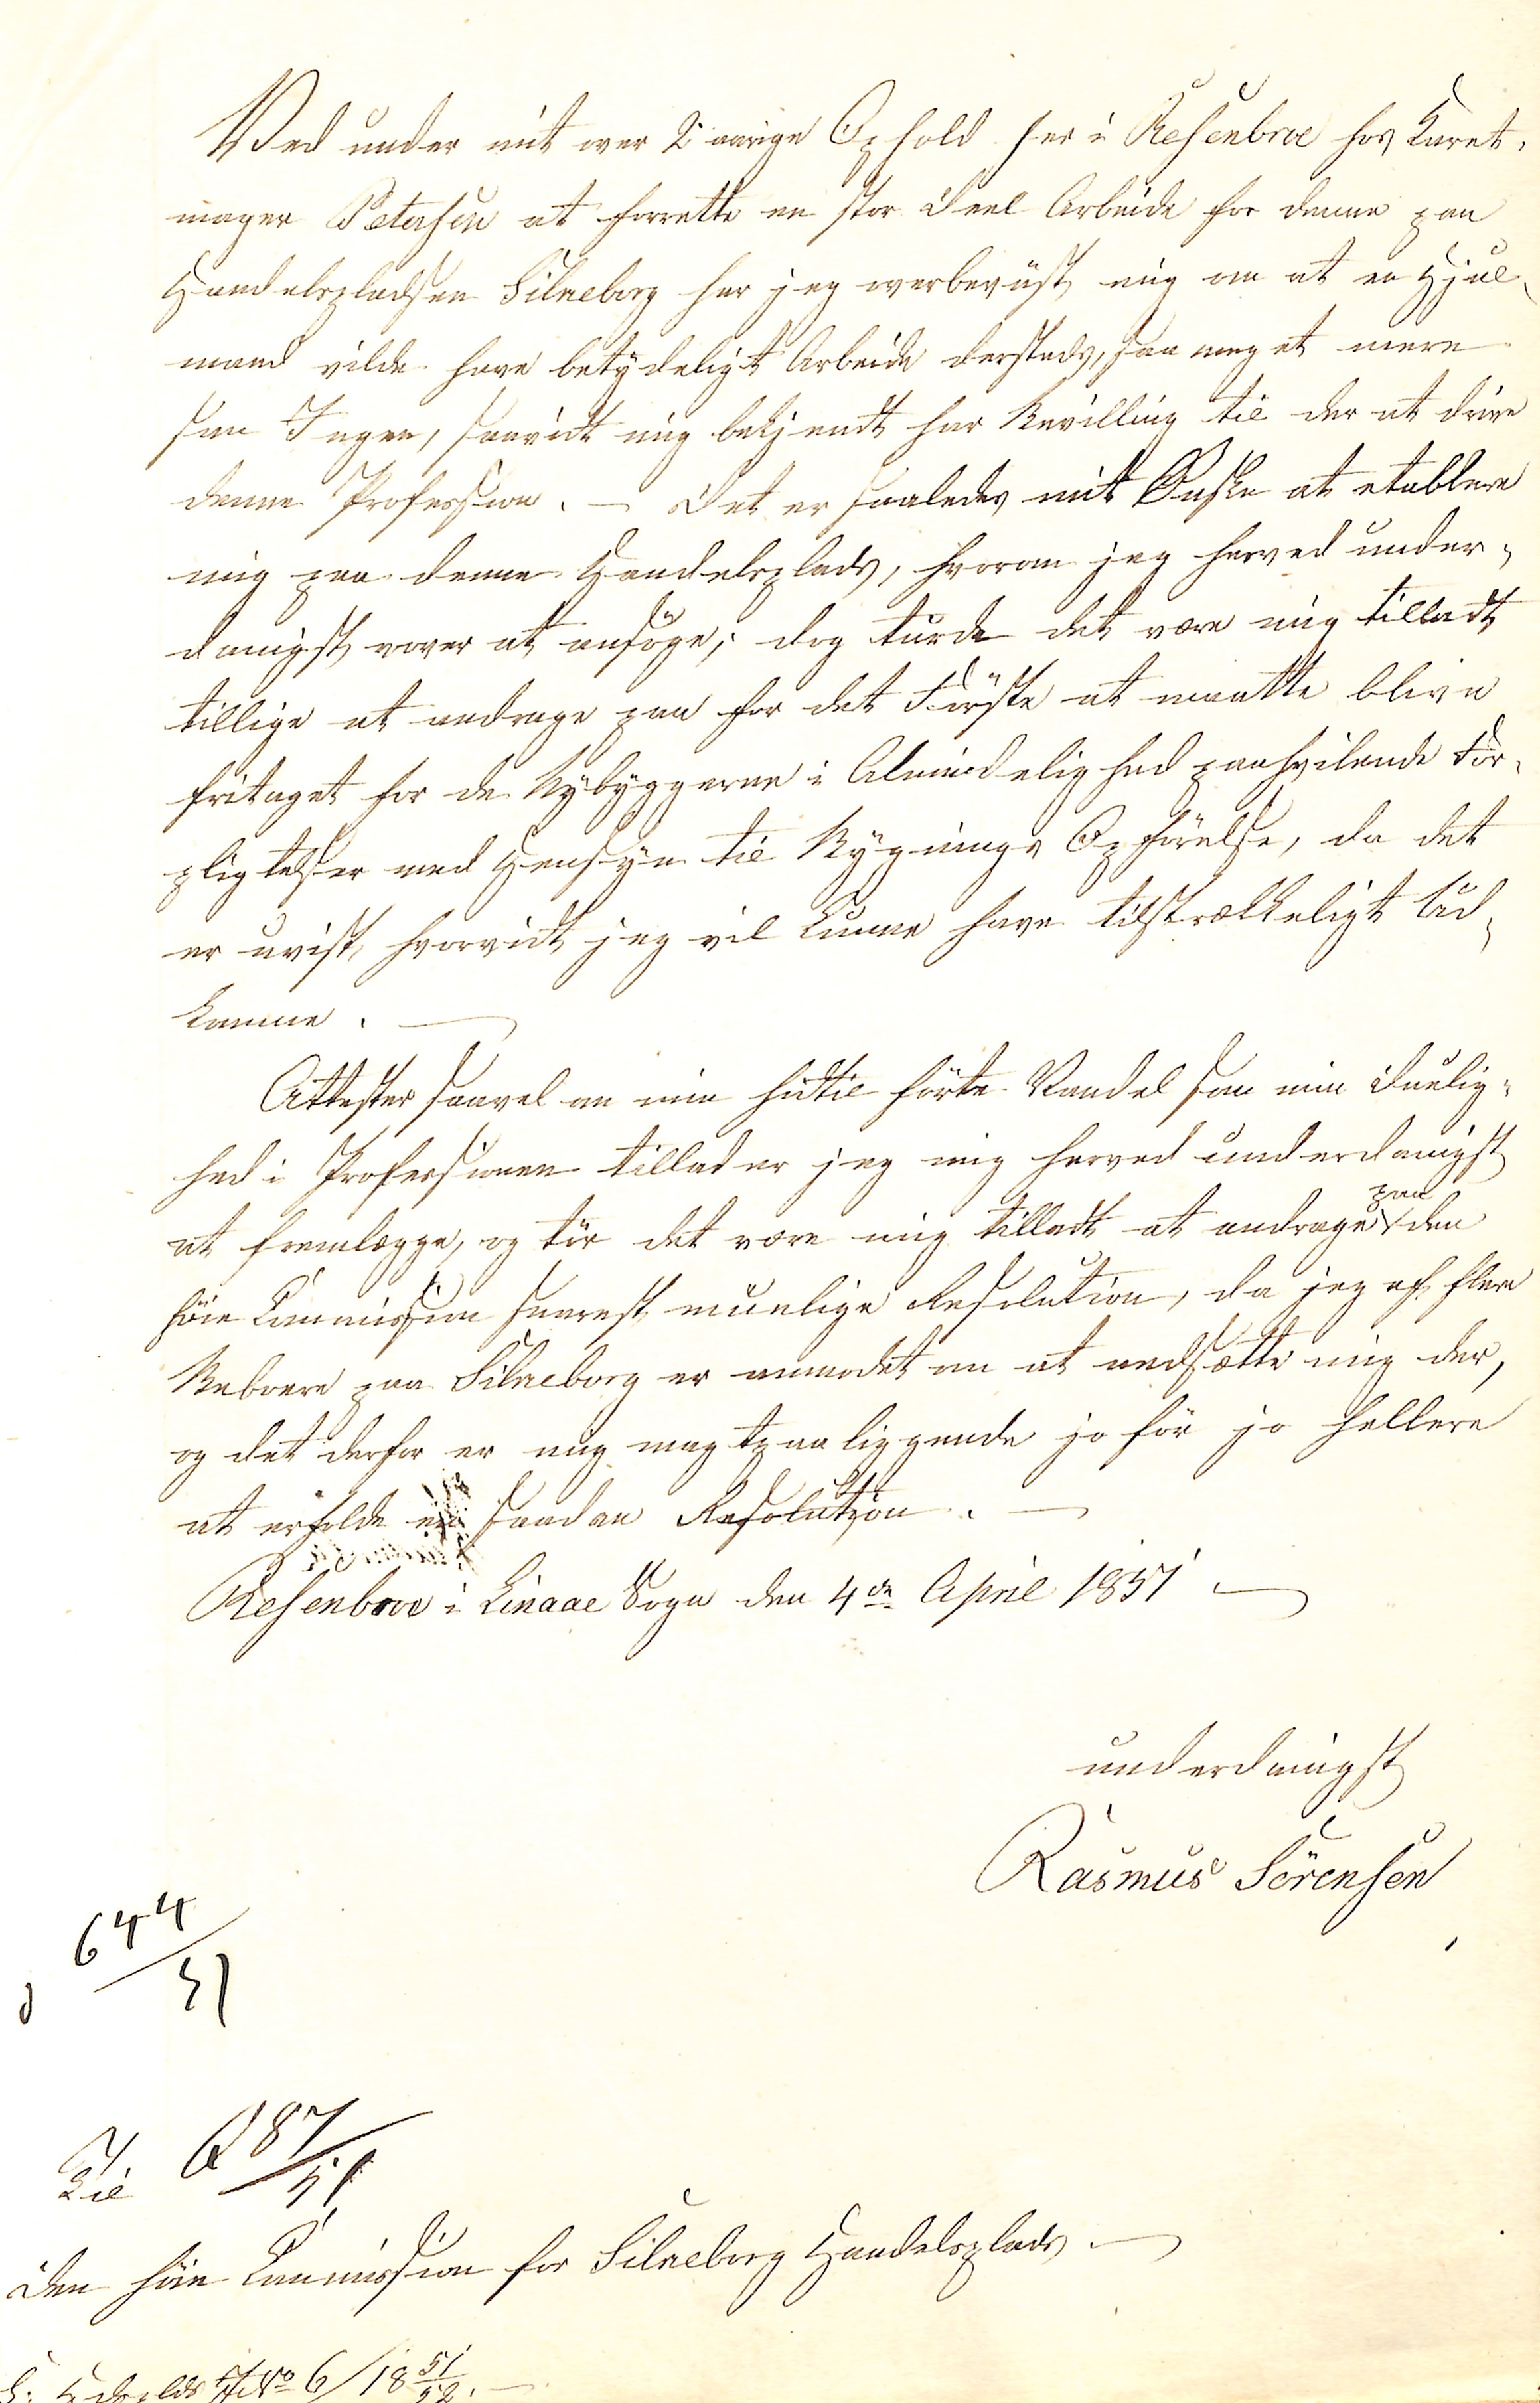 Ved under mit over 2 aarige Ophold her i Resenbroe hos Karet-
mager Petersen at forrette en stor Deel Arbeide for denne paa
Handelspladsen Silkeborg har jeg overbeviist mig om at en Hjul-
mand vilde have betydeligt Arbeide dersteds, saa meget mere
som Ingen, saavidt mig bekjendt har Bevilling til der at drive
denne Profession. — Det er saaledes mit Ønske at etablere
mig paa denne Handelsplads, hvorom jeg herved under-
danigst vover at ansöge; dog turde det være mig tilladt
tillige at andrage paa for det Förste at maatte blive
fritaget for de Nybyggerne i Almindelighed paahvilende For-
pligtelser med Hensyn til Bygnings Opförelse, da det
er uvist, hvorvidt jeg vil kunne have tilstrækkeligt Ud-
komme. —
Attester saavel om min hidtil förte Vandel som min Duelig-
hed i Professionen tillader jeg mig herved underdanigst
at fremlægge, og tör det være mig tilladt at andrage paa den
höie Commission snarest muelige Resolution, da jeg af flere
Beboere paa Silkeborg er anmodet om at nedsætte mig der,
og det derfor er mig magtpaaliggende jo för jo hellere
at erholde en saadan Resolution. —
Resenbroe i Linaae Sogn den 4de April 1851 —
underdanigst
Rasmus Sörensen
644
/51
Til
Q 87/51
Den höie Commission for Silkeborg Handelsplads —
No 6/18 51/52. —